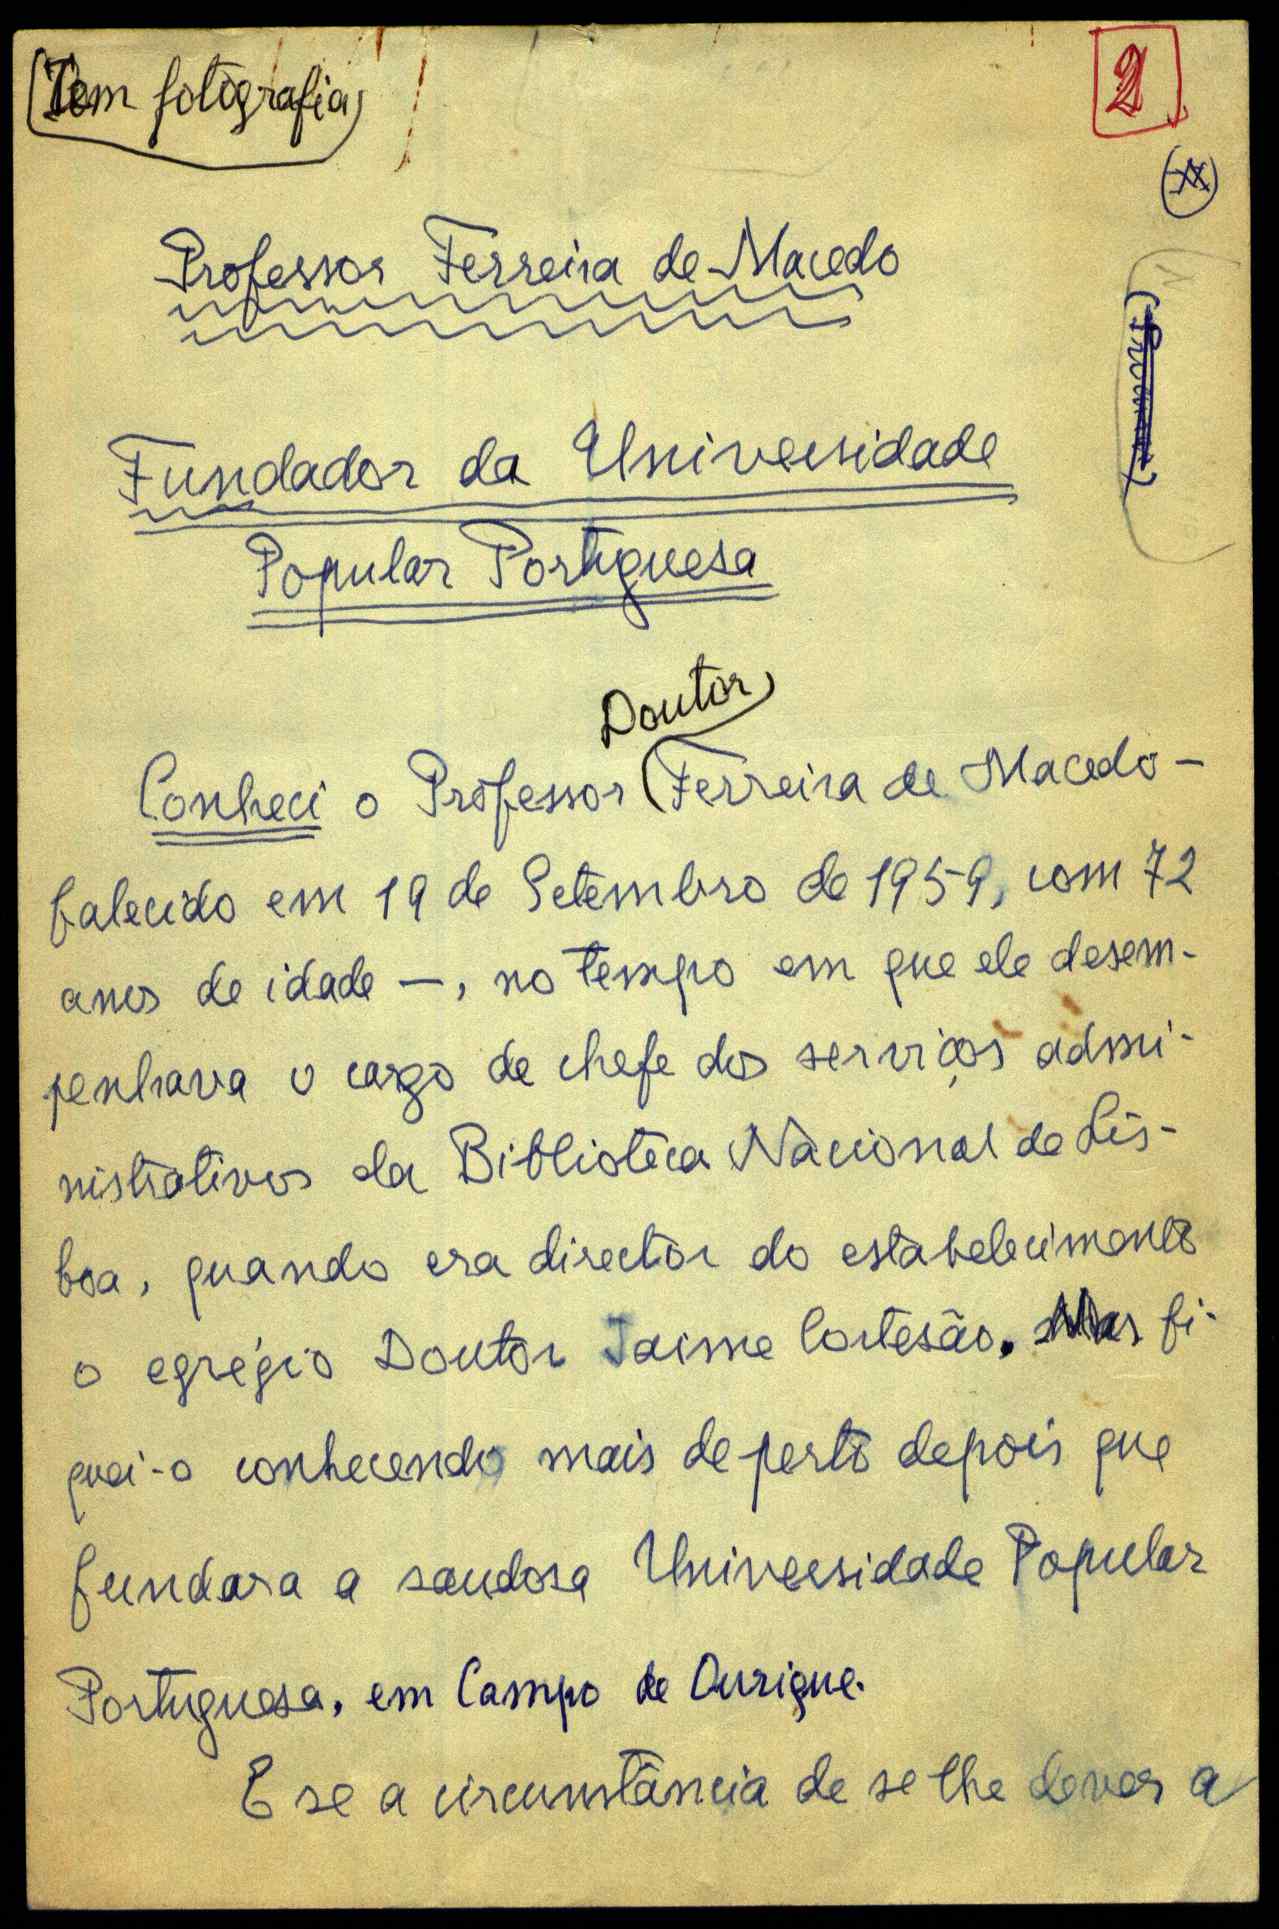 Tem fotografia
2
Professor Ferreira de Macedo
Fundador da Universidade
Popular Portuguesa
Doutor
Conheci o Professor Ferreira de Macedo –
falecido em 19 de Setembro de 1959, com 72
anos de idade –, no tempo em que ele desem-
penhava o cargo de chefe dos serviços admi-
nistrativos da Biblioteca Nacional de Lis-
boa, quando era director do estabelecimento
o egrégio Doutor Jaime Cortesão. Mas fi-
quei-o conhecendo mais de perto depois que
fundara a saudosa Universidade Popular
Portuguesa, em Campo de Ourique.
E se a circunstância de se lhe dever a